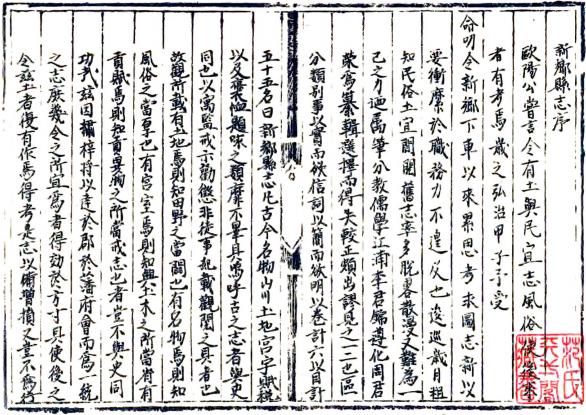 新鄉縣志序
歐陽公嘗言今有土與民宜志風俗使後來
者有考焉歲之弘治甲子予受
命明令新鄉下車以來累思考求圖志新以
要衝縻於職務力不遑及也逡巡歲月粗
知民俗土宜間閱舊志率多脫畧散漫又難為一
己之力迺屬筆分教儒學江浦李君錦遵化周君
榮為纂輯選擇而得失較正類出謬見之一二也區
分類別事以實而欲信詞以簡而欲明以卷計六以目計
五十五名曰新鄉縣志凡古今名物山川土地宮宇賦稅
以及齋匾題咏之類靡不畢具嗚呼古之志者與史
同也以寓監戒示勸懲非徒事紀載觀閱之具者也
故觀所載有土地焉則知田野之當闢也有名物焉則知
風俗之當厚也有宮室焉則知興土木之所當省有
貢賦焉則知貢
之所當戒志也者豈不與史同
功哉茲因
梓將以達於郡於藩府會而為一統
之志庶幾令之所宜為者得効於方寸具使後之
令茲土者復有作焉得考是志以
增損之豈不為
范氏天一閣藏書